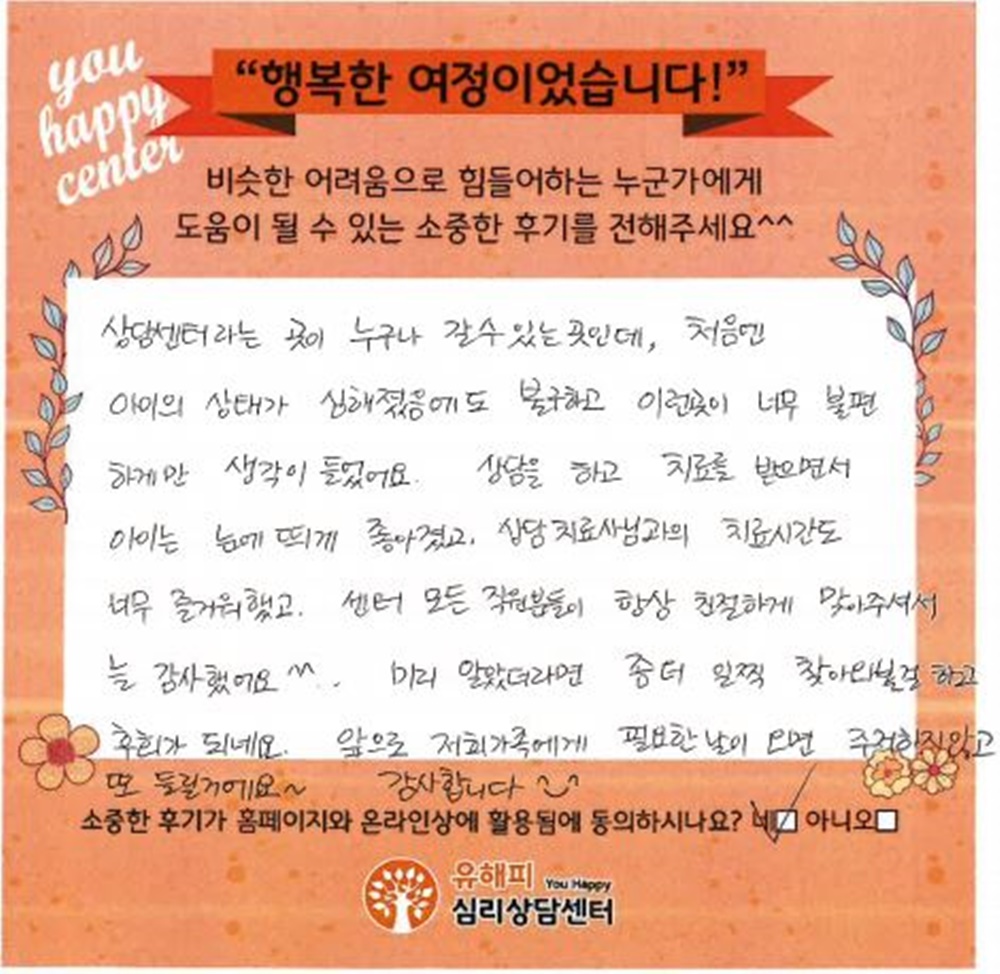 you
happy
center
“행복한 여정이었습니다!”
비슷한 어려움으로 힘들어하는 누군가에게
도움이 될 수 있는 소중한 후기를 전해주세요^^
상담센터라는 곳이 누구나 갈수있는곳인데, 처음엔
아이의 상태가 심해졌음에도 불구하고 이런곳이 너무 불편
하게만 생각이 들었어요. 상담을 하고 치료를 받으면서
아이는 눈에 띄게 좋아졌고. 상담치료사님과의 치료시간도
너무 즐거워했고. 센터 모든 직원분들이 항상 친절하게 맞아주셔서
늘 감사했어요^^.. 미리 알았더라면 좀더 일찍 찾아와볼걸 하고
후회가 되네요. 앞으로 저희가족에게 필요한날이 오면 주저하지않고
또 들릴거에요~ 감사합니다
소중한 후기가 홈페이지와 온라인상에 활용됨에 동의하시나요? 네 아니오
유해피 You Happy
심리상담센터